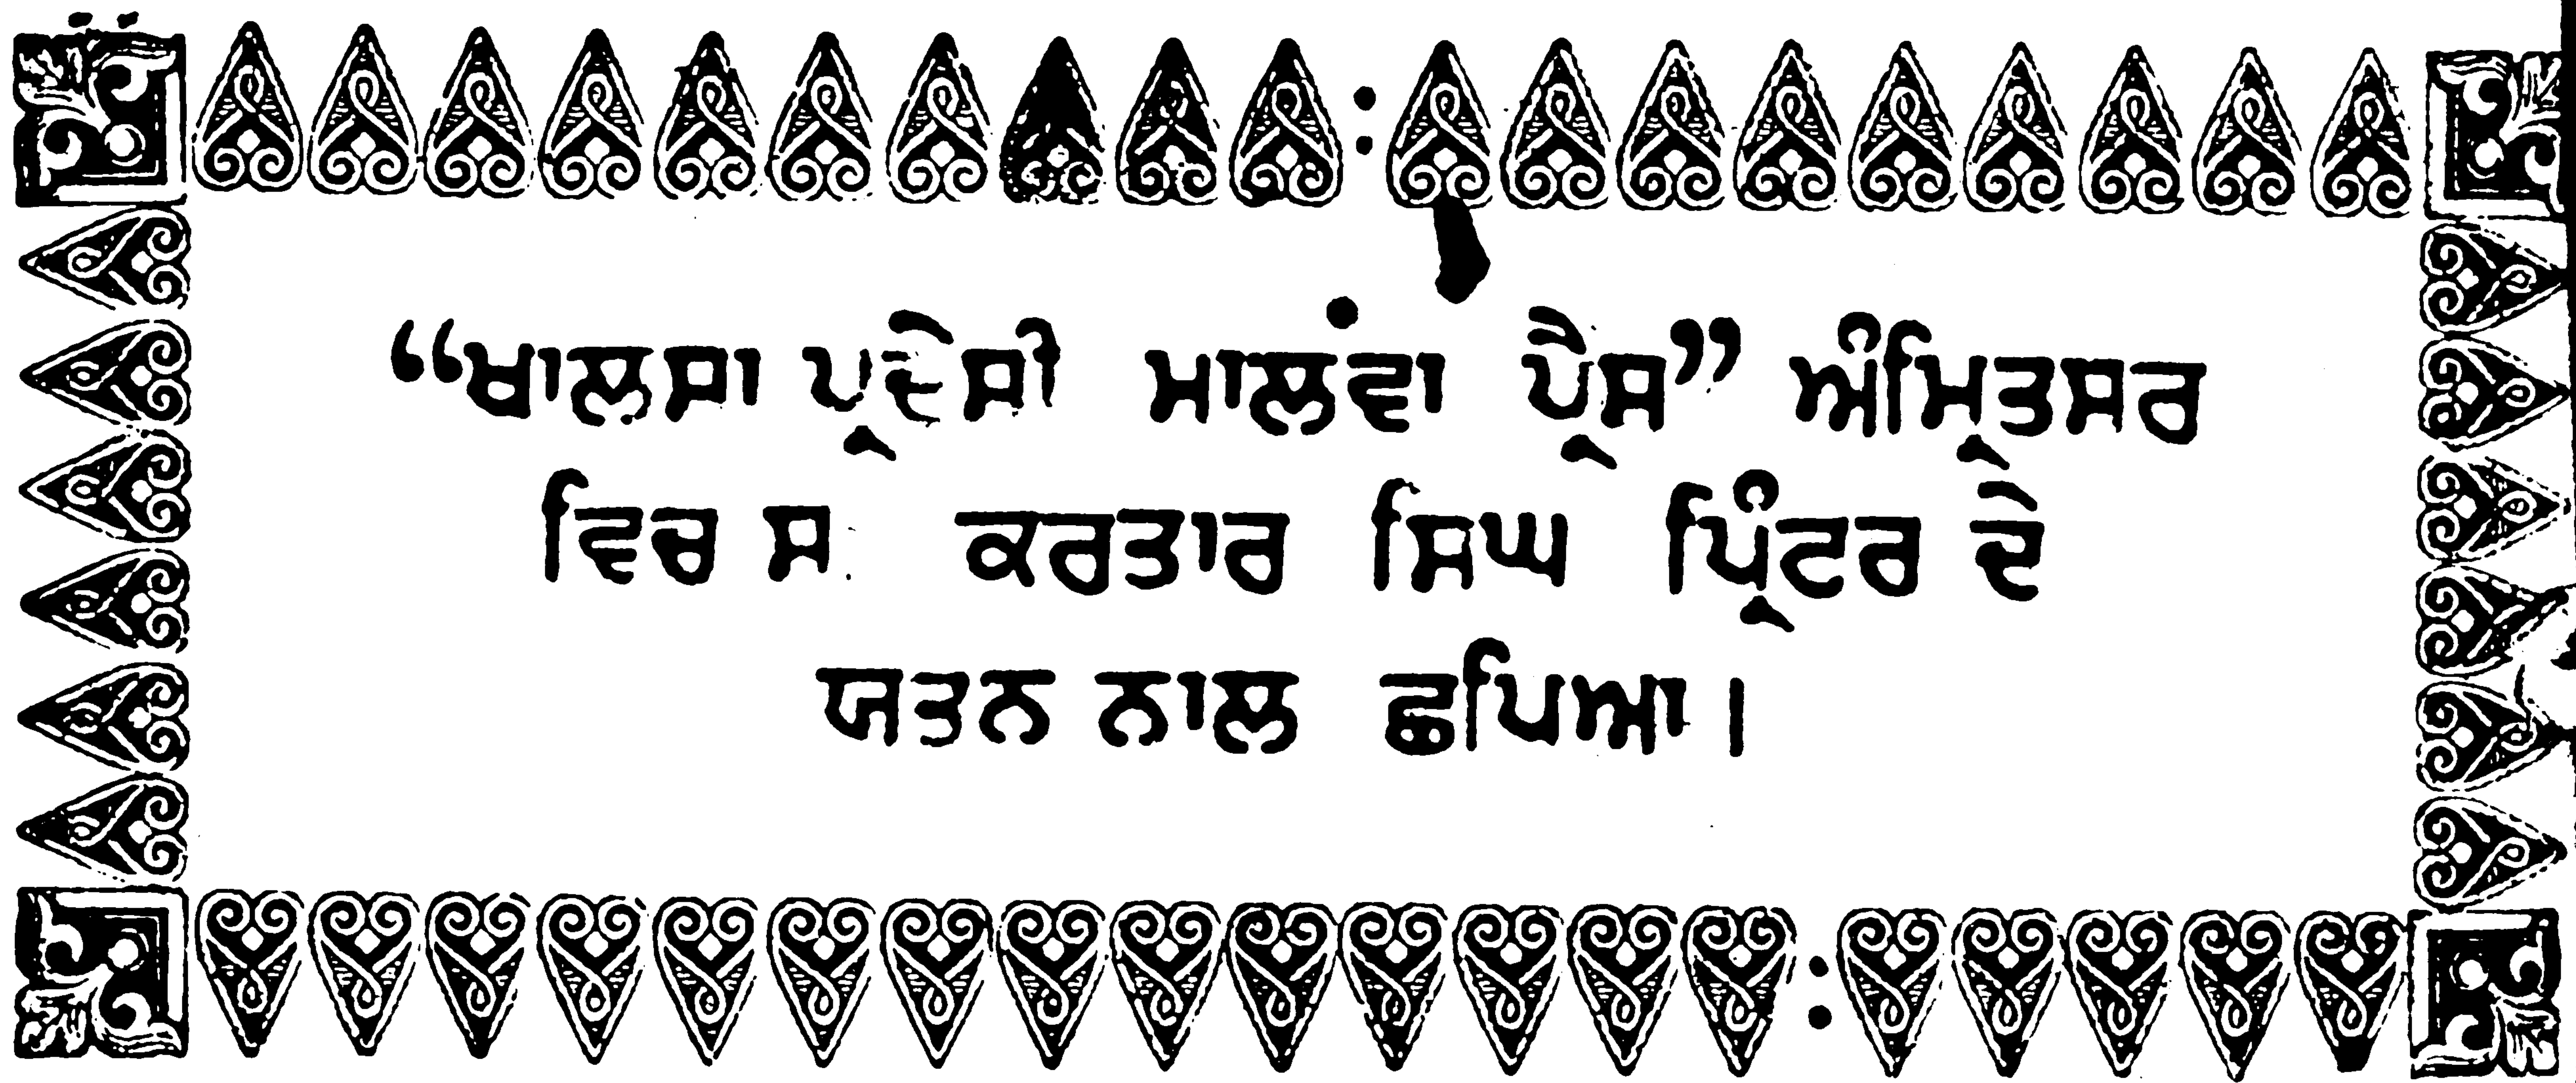 “ਖਾਲਸਾ ਪ੍ਰਦੇਸੀ ਮਾਲਵਾਂ ਪ੍ਰੈਸ” ਅੰਮ੍ਰਿਤਸਰ
ਵਿਚ ਸ. ਕਰਤਾਰ ਸਿਘ ਪ੍ਰਿੰਟਰ ਦੇ
ਯਤਨ ਨਾਲ ਛਪਿਆ।